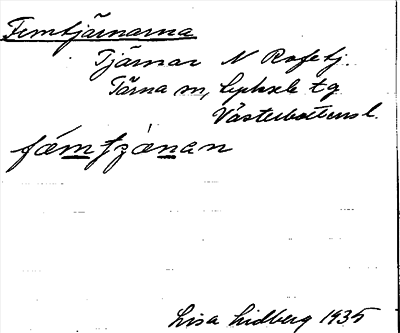 Femtjärnarna
Tjärnar N Rafetj.
Tärna sn, Lycksele tg
Västerbottens l.
Lisa Lidberg 1935